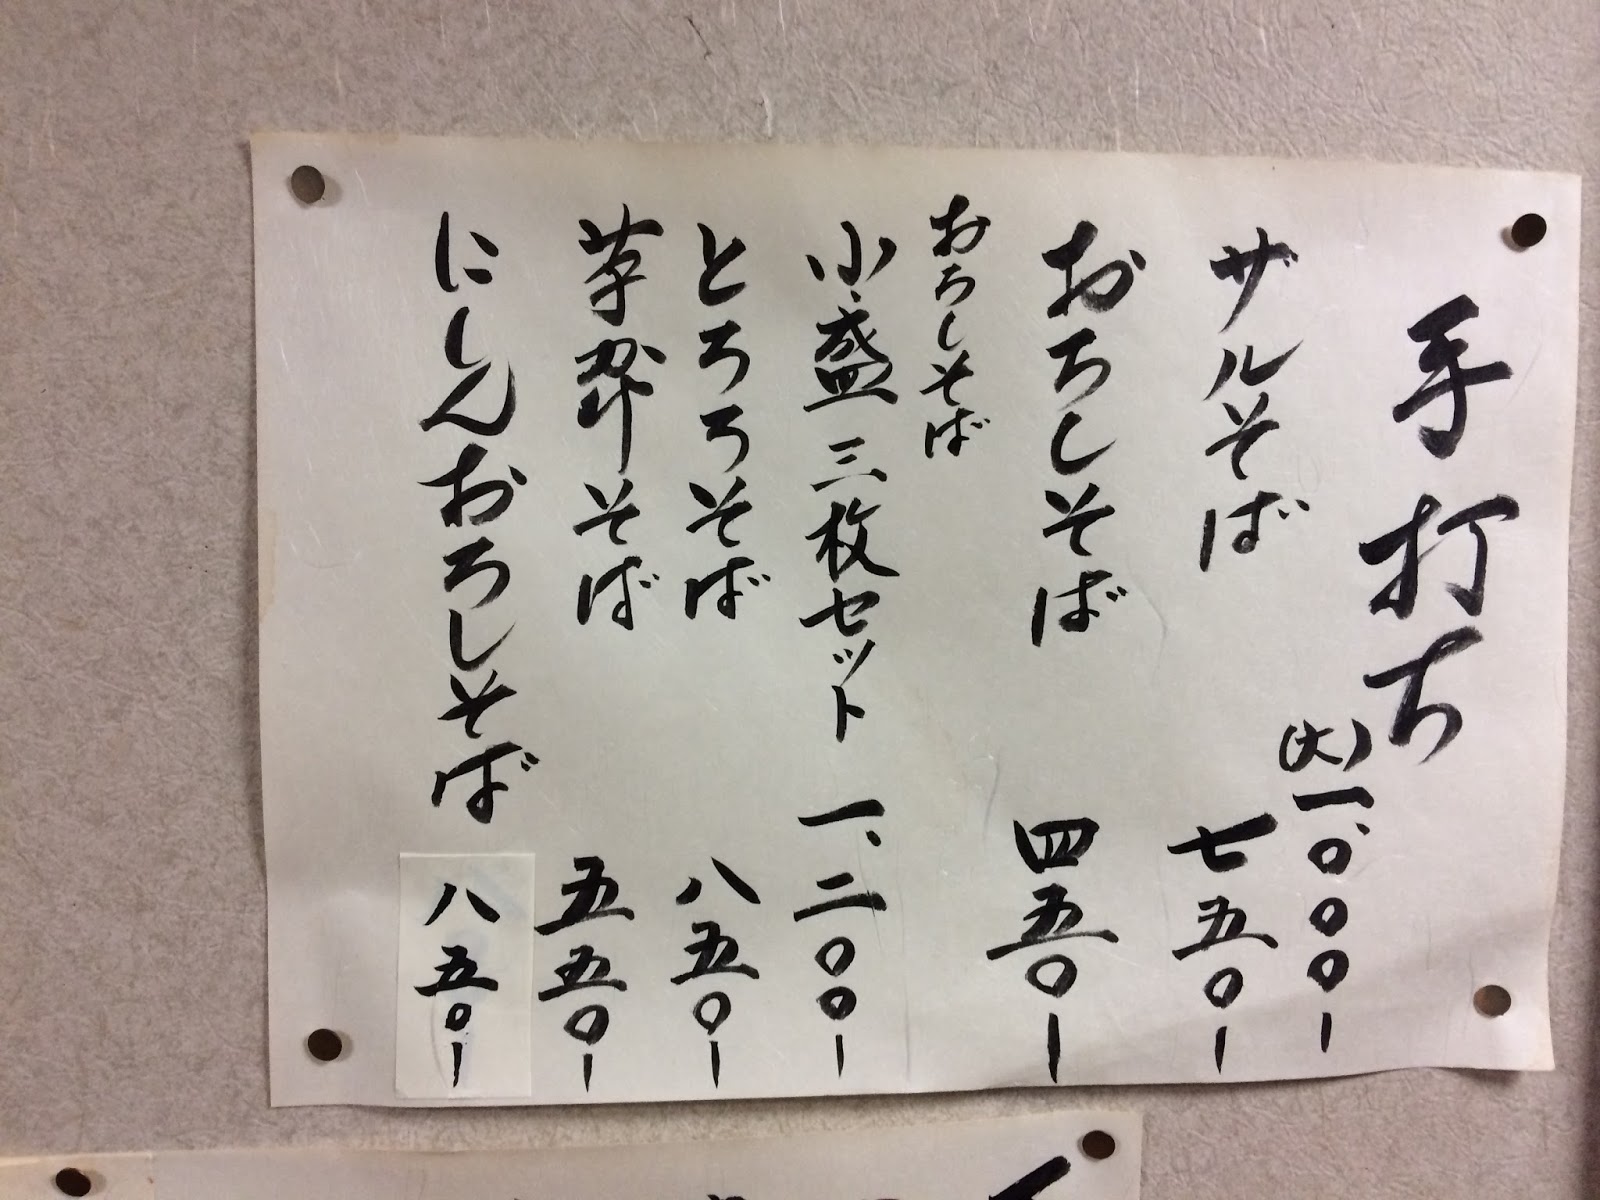 手打ち
(大)一、〇〇〇ー
ザルそば 七五〇ー
おろしそば 四五〇ー
おろしそば
小盛三枚セット 一、二〇〇ー
とろろそば 八五〇ー
そば 五五〇ー
にしんおろしそば 八五〇ー